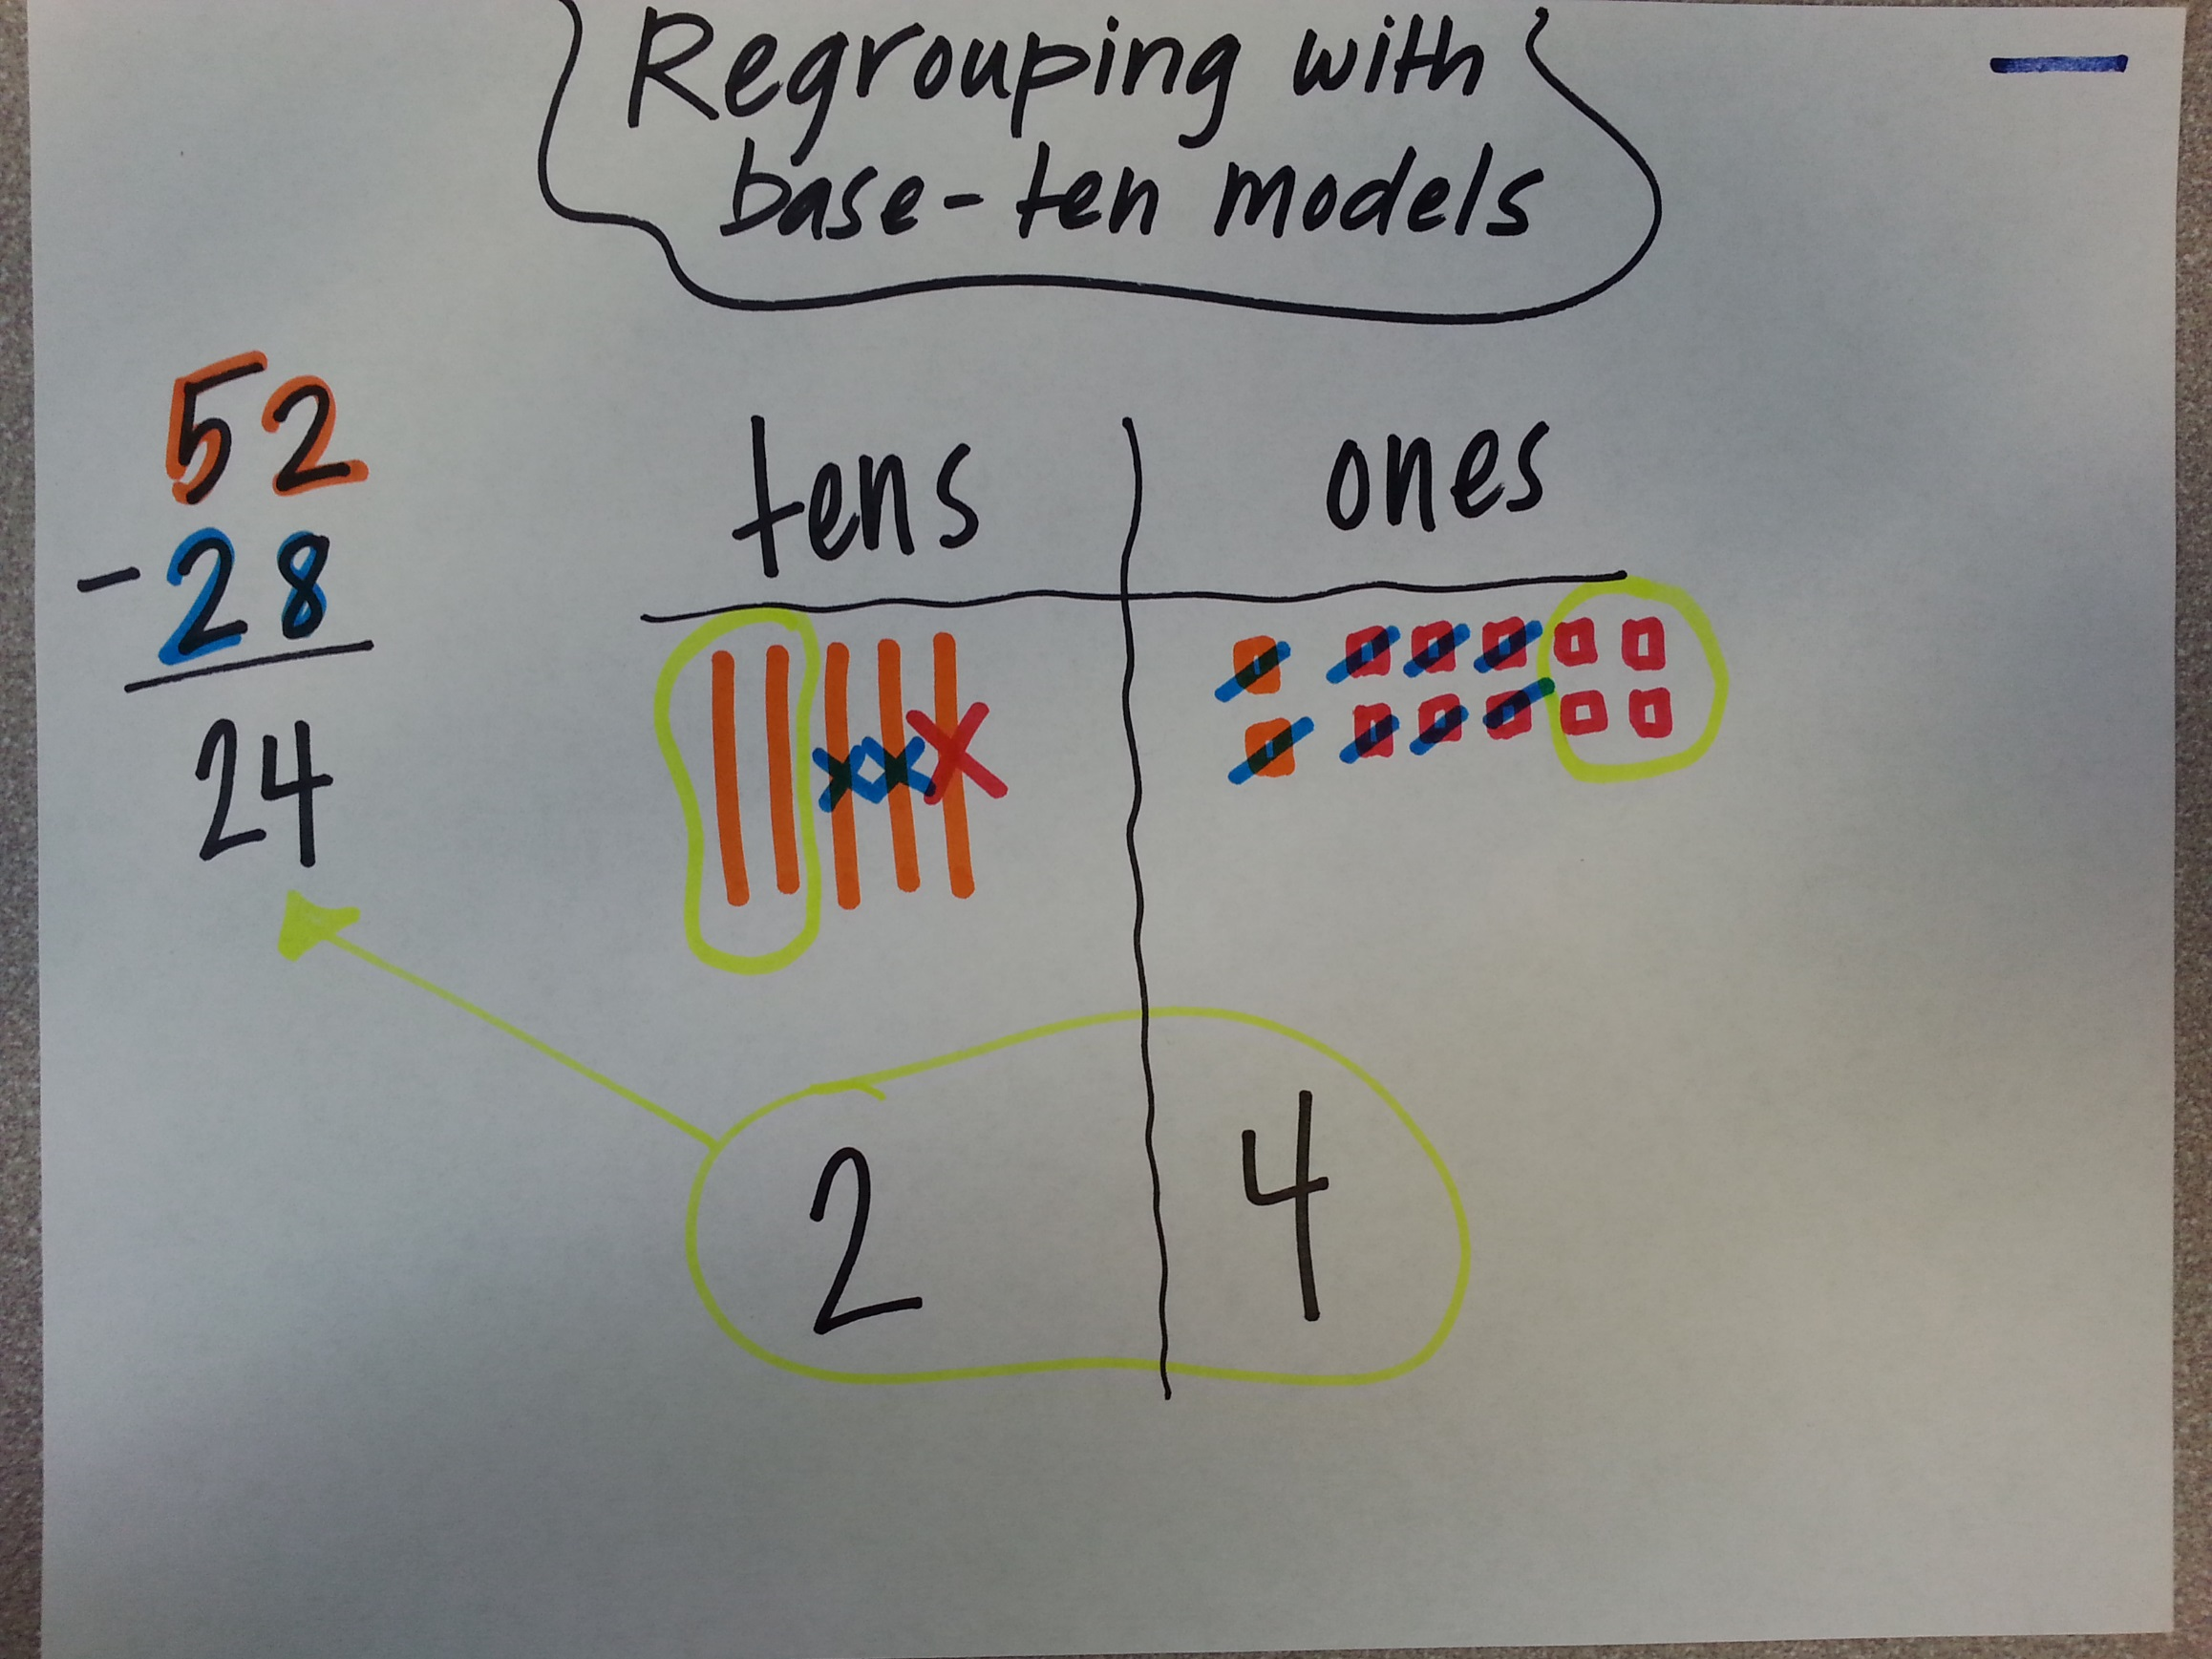 Regrouping with
base-ten models
52
- 28
24
tens ones
2 4